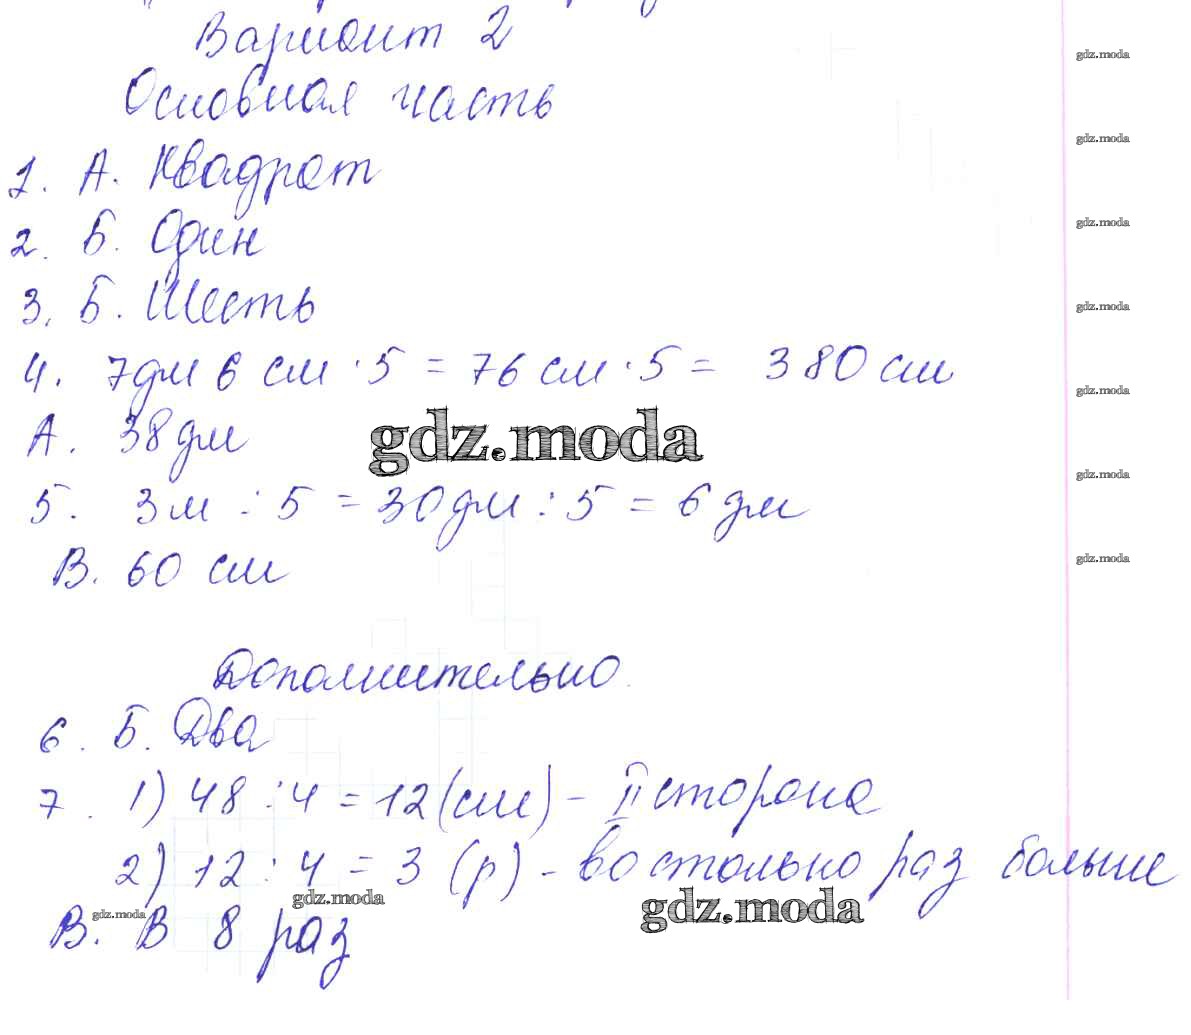 Вариант 2
gdz.moda
Основная часть
gdz.moda
1. А. Квадрат
2. Б. Один
gdz.moda
3. Б. Шесть
gdz.moda
4. 7дм 6 см · 5 = 76 см · 5 = 380 см
gdz.moda
А. 38 дм
gdz.moda
gdz.moda
5. 3м : 5 = 30дм : 5 = 6 дм
В. 60 см
gdz.moda
Дополнительно
6. Б. Два
7. 1) 48 : 4 = 12 (см) – II сторона
2) 12 : 4 = 3 (р) – во столько раз больше
gdz.moda
gdz.moda
gdz.moda
В. В 8 раз